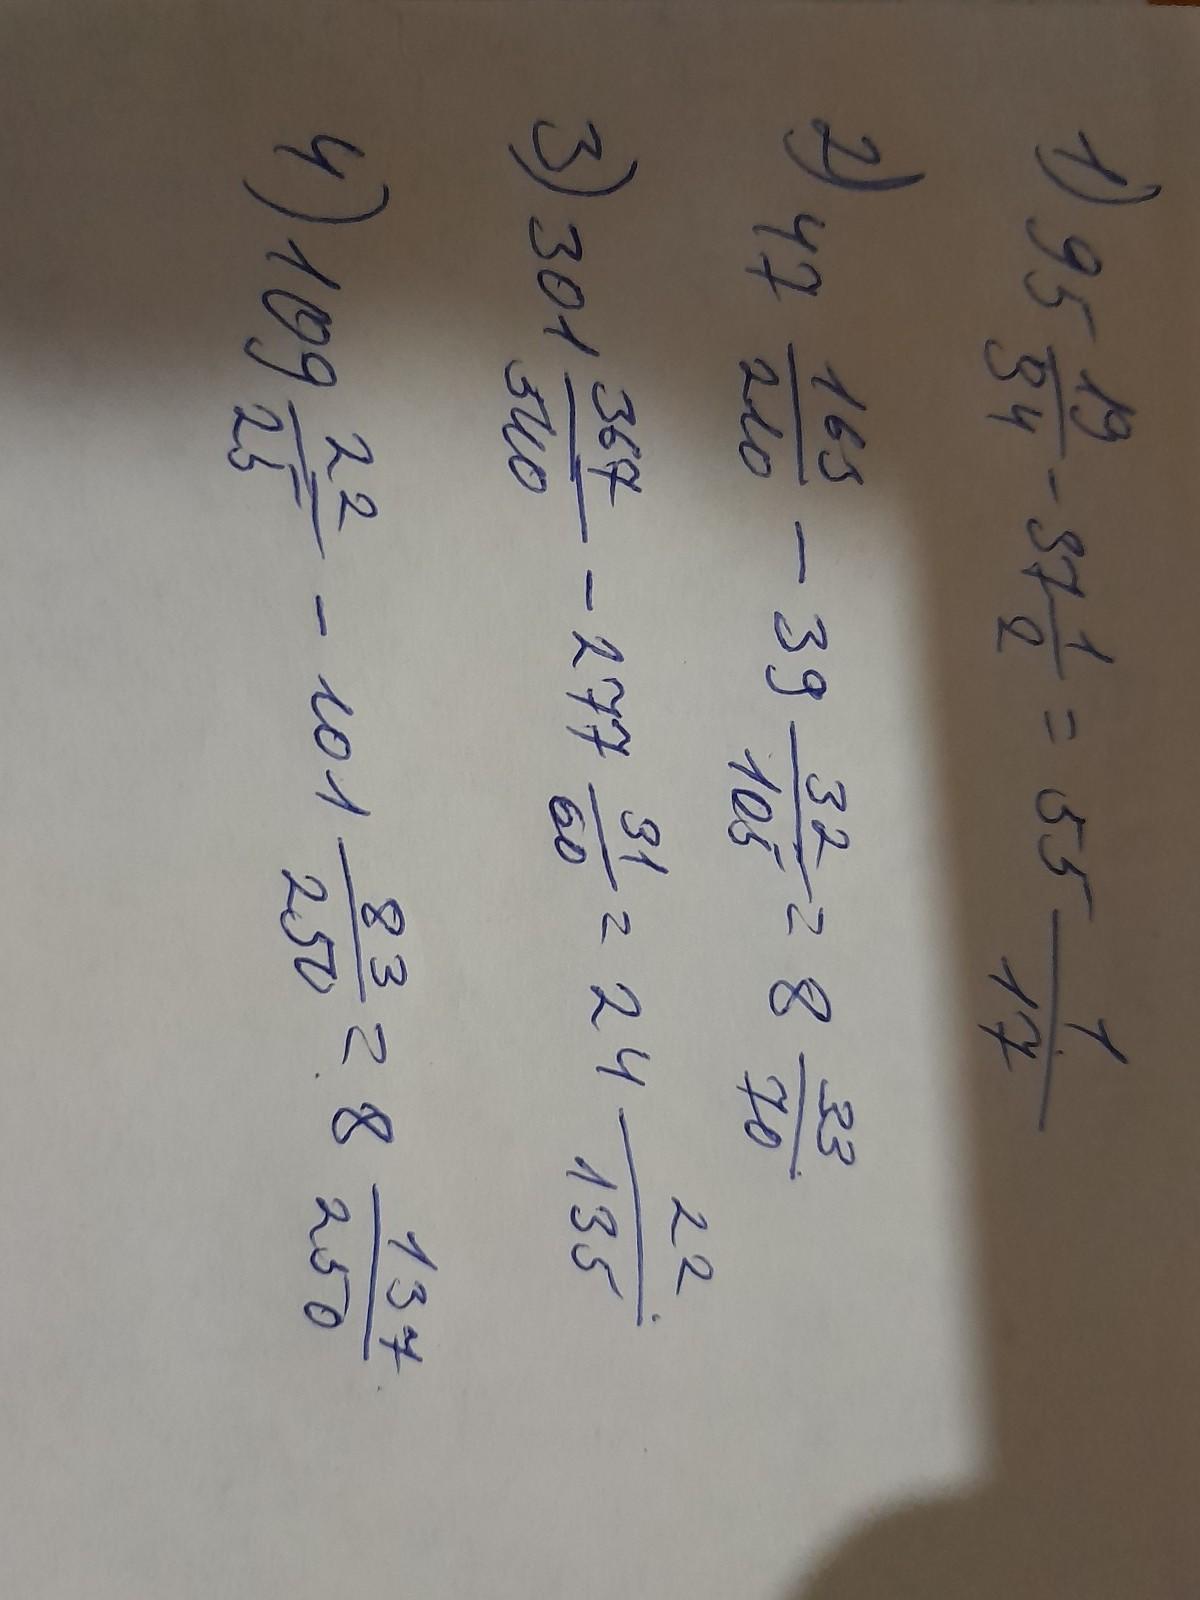 1) 95 19/34 - 37 1/2 = 55 1/17
2) 47 163/210 - 39 32/105 = 8 33/70
3) 301 367/540 - 277 31/60 = 24 22/135
4) 109 22/25 - 101 83/250 = 8 137/250